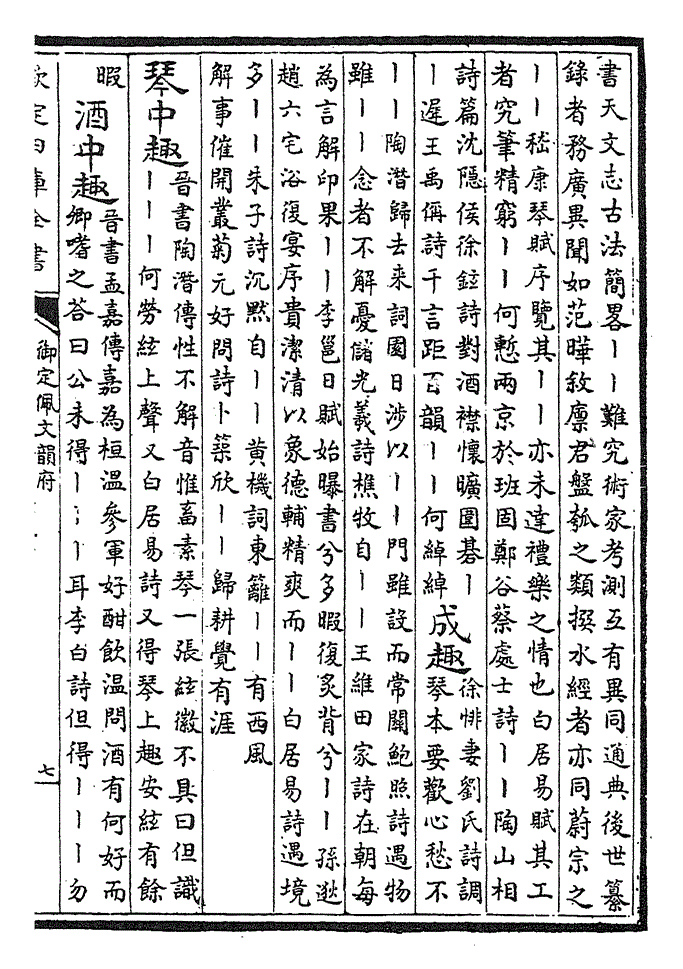 書天文志古法簡畧丨丨難究術家考測互有異同通典後世纂
錄者務廣異聞如范曄敘廪君盤瓠之類撰水經者亦同蔚宗之
丨丨嵇康琴賦序覽其丨丨亦未達禮樂之情也白居易賦其工
者究筆精窮丨丨何慙兩京於班固鄭谷蔡處士詩丨丨陶山相
詩篇沈隱侯徐鉉詩對酒襟懷曠圍碁丨
丨遲王禹偁詩千言距百韻丨丨何綽綽
成趣
徐悱妻劉氏詩調
琴本要歡心愁不
丨丨陶潛歸去来詞園日涉以丨丨門雖設而常關鮑照詩遇物
雖丨丨念者不解憂儲光羲詩樵牧自丨丨王維田家詩在朝每
為言解印果丨丨李邕日賦始曝書兮多暇復炙背兮丨丨孫逖
趙六宅浴復宴序貴潔清以象德輔精爽而丨丨白居易詩遇境
多丨丨朱子詩沉默自丨丨黄機詞東籬丨丨有西風
解事催開叢菊元好問詩卜築欣丨丨歸耕覺有涯
琴中趣
晉書陶潛傳性不解音惟畜素琴一張絃徽不具曰但識
丨丨丨何勞絃上聲又白居易詩又得琴上趣安絃有餘
暇
酒中趣
晉書孟嘉傳嘉為桓溫參軍好酣飲温問酒有何好而
卿嗜之荅曰公未得丨丨丨耳李白詩但得丨丨丨勿
欽定四庫全書
御定佩文韻府
七